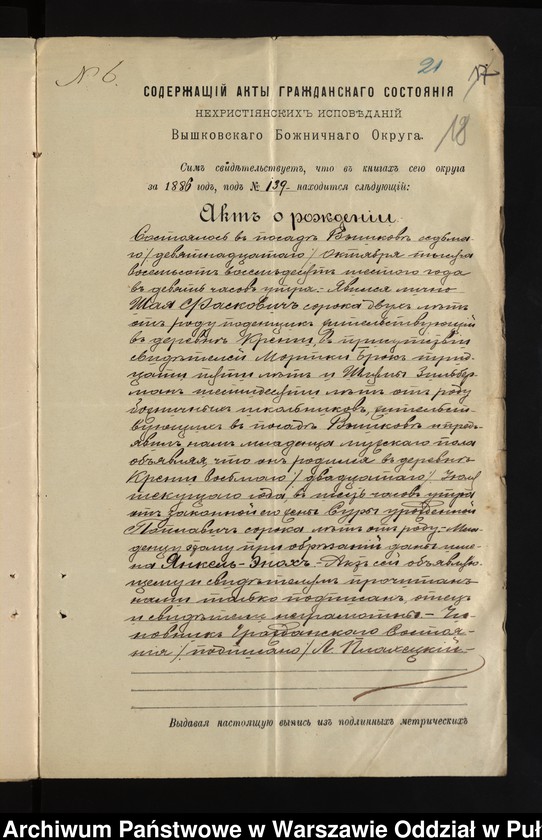 № 6.
21
17
18
СОДЕРЖАЩІЙ АКТЫ ГРАЖДАНСКАГО СОСТОЯНІЯ
НЕХРИСТІЯНСКИХЪ ИСПОВѢДАНІЙ
Вышковскаго Божничнаго Округа.
Симъ свидѣтельствуетъ, что въ книгахъ сего округа
за 1886 годъ, подъ № 139 находится слѣдующій:
Актъ о рожденіи.
Состоялось въ посадѣ Вышковѣ седьма-
го /девятнадцатаго/ Октября тысяча
восемьсотъ восемьдесятъ шестого года
въ девять часовъ утра. Явился лично
Шая Фаскович сорока двухъ лѣтъ
отъ роду поденщик жительствующій
въ деревнѣ въ присутствіи
свидѣтелей Мортки Брок трид-
цати пяти лѣтъ и Шмуль Зильбер-
ман шестидесяти лѣтъ отъ роду
божничных школьников, жительст-
вующих въ посадѣ Вышковѣ и предъ-
явил нам младенца мужскаго пола
объявляя, что он родился въ деревнѣ
восьмаго /двадцатаго/ Іюля
текущаго года въ часов утра
отъ законной его жены Суры урожденной
сорока лѣтъ отъ роду. Мла-
денцу этому при обрѣзаніи дано име-
на Янкель-Энохъ. Актъ сей объявляю-
щему и свидѣтелям прочитан
нами только подписан, отец
и свидѣтели неграмотны. Чи-
новник Гражданскаго Состоя-
нія /подписано/ А. Плахецкій
Выдавая настоящую выпись изъ подлинныхъ метрическихъ
Archiwum Państwowe w Warszawie Oddział w Puł